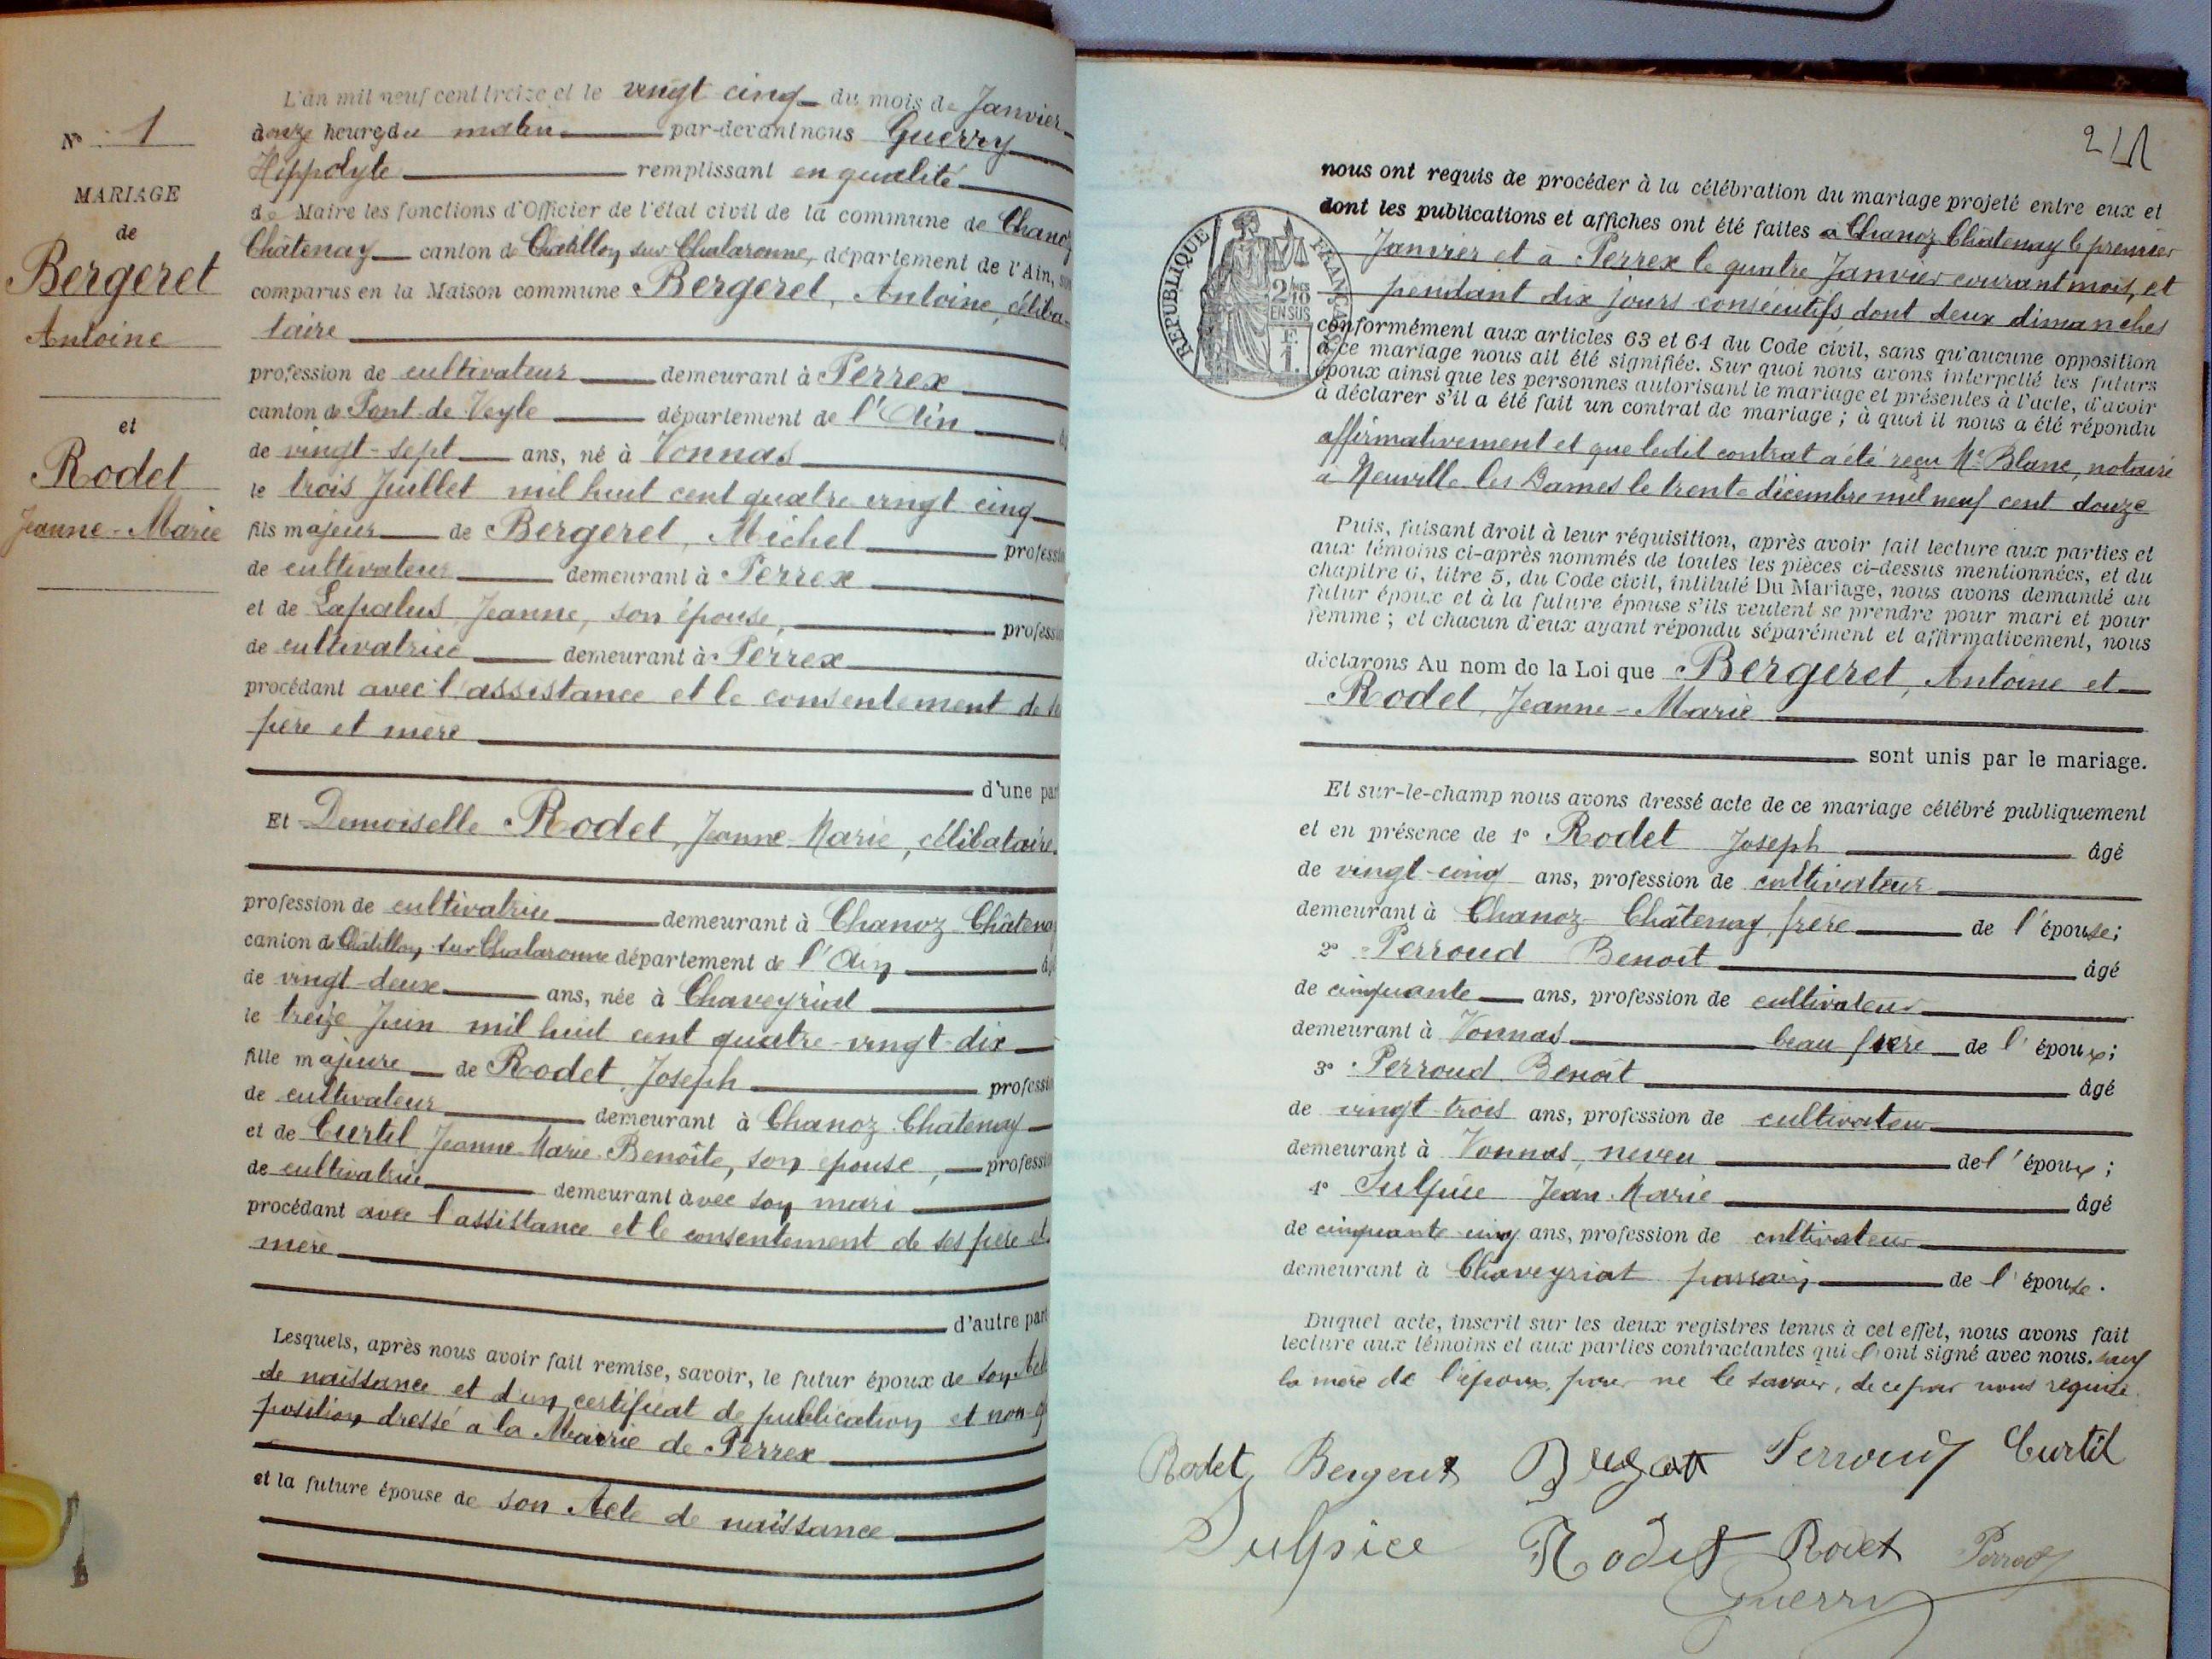 N° 1
MARIAGE
de
Bergeret
Antoine
et
Rodet
Jeanne-Marie
L'an mil neuf cent treize et le vingt cinq du mois de Janvier
heures du matin par-devant nous Guerry
Hippolyte remplissant en qualité
de Maire les fonctions d'Officier de l'état civil de la commune de Chanoz
Châtenay canton de Châtillon sur Chalaronne, département de l'Ain, son
comparus en la Maison commune Bergeret, Antoine, céliba-
taire
profession de cultivateur demeurant à Perrex
canton de Pont-de-Veyle département de l'Ain
de vingt-sept ans, né à Vonnas
le trois Juillet mil huit cent quatre vingt cinq
fils majeur de Bergeret, Michel professio
de cultivateur demeurant à Perrex
et de Lapalus, Jeanne, son épouse, professio
de cultivatrice demeurant à Perrex
procédant avec l'assistance et le consentement de
père et mère
d'une par
Et Demoiselle Rodet, Jeanne-Marie, célibataire.
profession de cultivatrice demeurant à Chanoz-Châtenay
canton de Châtillon sur Chalaronne département de l'Ain
de vingt-deux ans, née à Chaveyriat
le treize Juin mil huit cent quatre-vingt-dix
fille majeure de Rodet, Joseph professi
de cultivateur demeurant à Chanoz-Châtenay
et de Curtil Jeanne-Marie-Benoîte, son épouse, professi
de cultivatrice demeurant avec son mari
procédant avec l'assistance et le consentement de ses père et
mère
d'autre part
Lesquels, après nous avoir fait remise, savoir, le futur époux de son Acte
de naissance et d'un certificat de publication et non-op
position dressé à la Mairie de Perrex
et la future épouse de son Acte de naissance
nous ont requis de procéder à la célébration du mariage projeté entre eux et
dont les publications et affiches ont été faites à Chanoz Châtenay le premier
Janvier et à Perrex le quatre Janvier courant mois, et
pendant dix jours consécutifs dont deux dimanches
RÉPUBLIQUE FRANÇAISE
2/10
EN SUS
F.
1.
conformément aux articles 63 et 64 du Code civil, sans qu'aucune opposition
à ce mariage nous ait été signifiée. Sur quoi nous avons interpellé les futurs
époux ainsi que les personnes autorisant le mariage et présentes à l'acte, d'avoir
à déclarer s'il a été fait un contrat de mariage ; à quoi il nous a été répondu
affirmativement et que ledit contrat a été reçu Me Blanc, notaire
à Neuville les Dames le trente décembre mil neuf cent douze
Puis, faisant droit à leur réquisition, après avoir fait lecture aux parties et
aux témoins ci-après nommés de toutes les pièces ci-dessus mentionnées, et du
chapitre 6, titre 5, du Code civil, intitulé Du Mariage, nous avons demandé au
futur époux et à la future épouse s'ils veulent se prendre pour mari et pour
femme ; et chacun d'eux ayant répondu séparément et affirmativement, nous
déclarons Au nom de la Loi que Bergeret, Antoine et
Rodet, Jeanne-Marie
sont unis par le mariage.
Et sur-le-champ nous avons dressé acte de ce mariage célébré publiquement
et en présence de 1° Rodet Joseph âgé
de vingt-cinq ans, profession de cultivateur
demeurant à Chanoz-Châtenay, frère de l'épouse ;
2° Perroud Benoît âgé
de cinquante ans, profession de cultivateur
demeurant à Vonnas beau frère de l'époux ;
3° Perroud Benoît âgé
de vingt-trois ans, profession de cultivateur
demeurant à Vonnas, neveu de l'époux ;
4° Sulpice Jean-Marie âgé
de cinquante cinq ans, profession de cultivateur
demeurant à Chaveyriat parrain de l'épouse.
Duquel acte, inscrit sur les deux registres tenus à cet effet, nous avons fait
lecture aux témoins et aux parties contractantes qui l'ont signé avec nous. sauf
la mère de l'époux, pour ne le savoir, de ce par nous requise.
Rodet Bergeret Perroud Curtil
Sulpice Rodet Rodet Perroud
Guerry